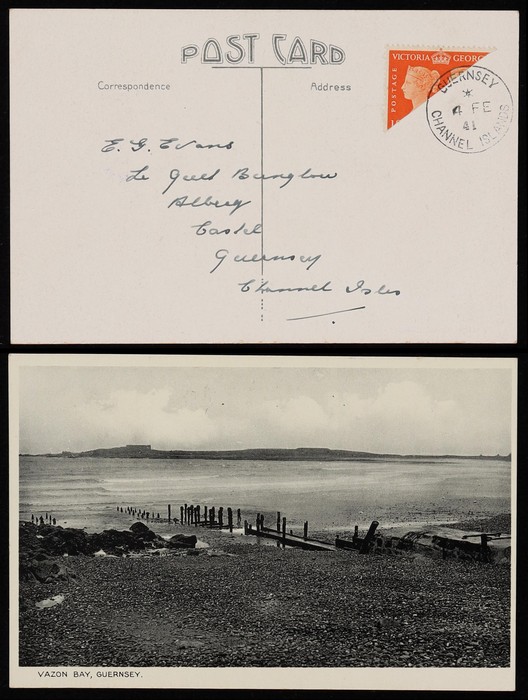 POST CARD
Correspondence
Address
VICTORIA GEORG
POSTAGE
GUERNSEY
4 FE
41
CHANNEL ISLANDS
E. G. Evans
Le Bunglow
Albecq
Castel
Guernsey
Channel Isles
VAZON BAY, GUERNSEY.